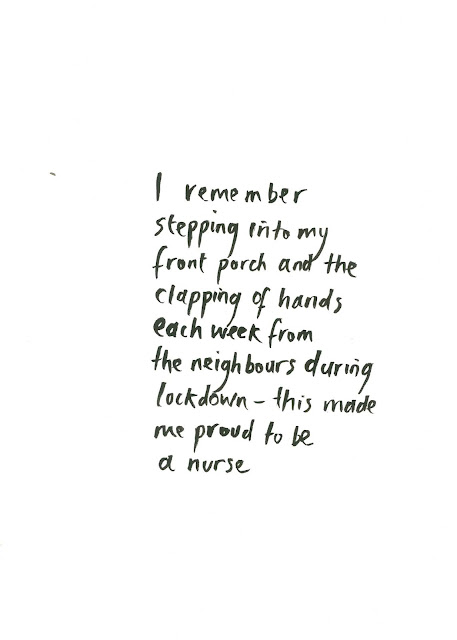 I remember
stepping into my
front porch and the
clapping of hands
each week from
the neighbours during
lockdown – this made
me proud to be
a nurse